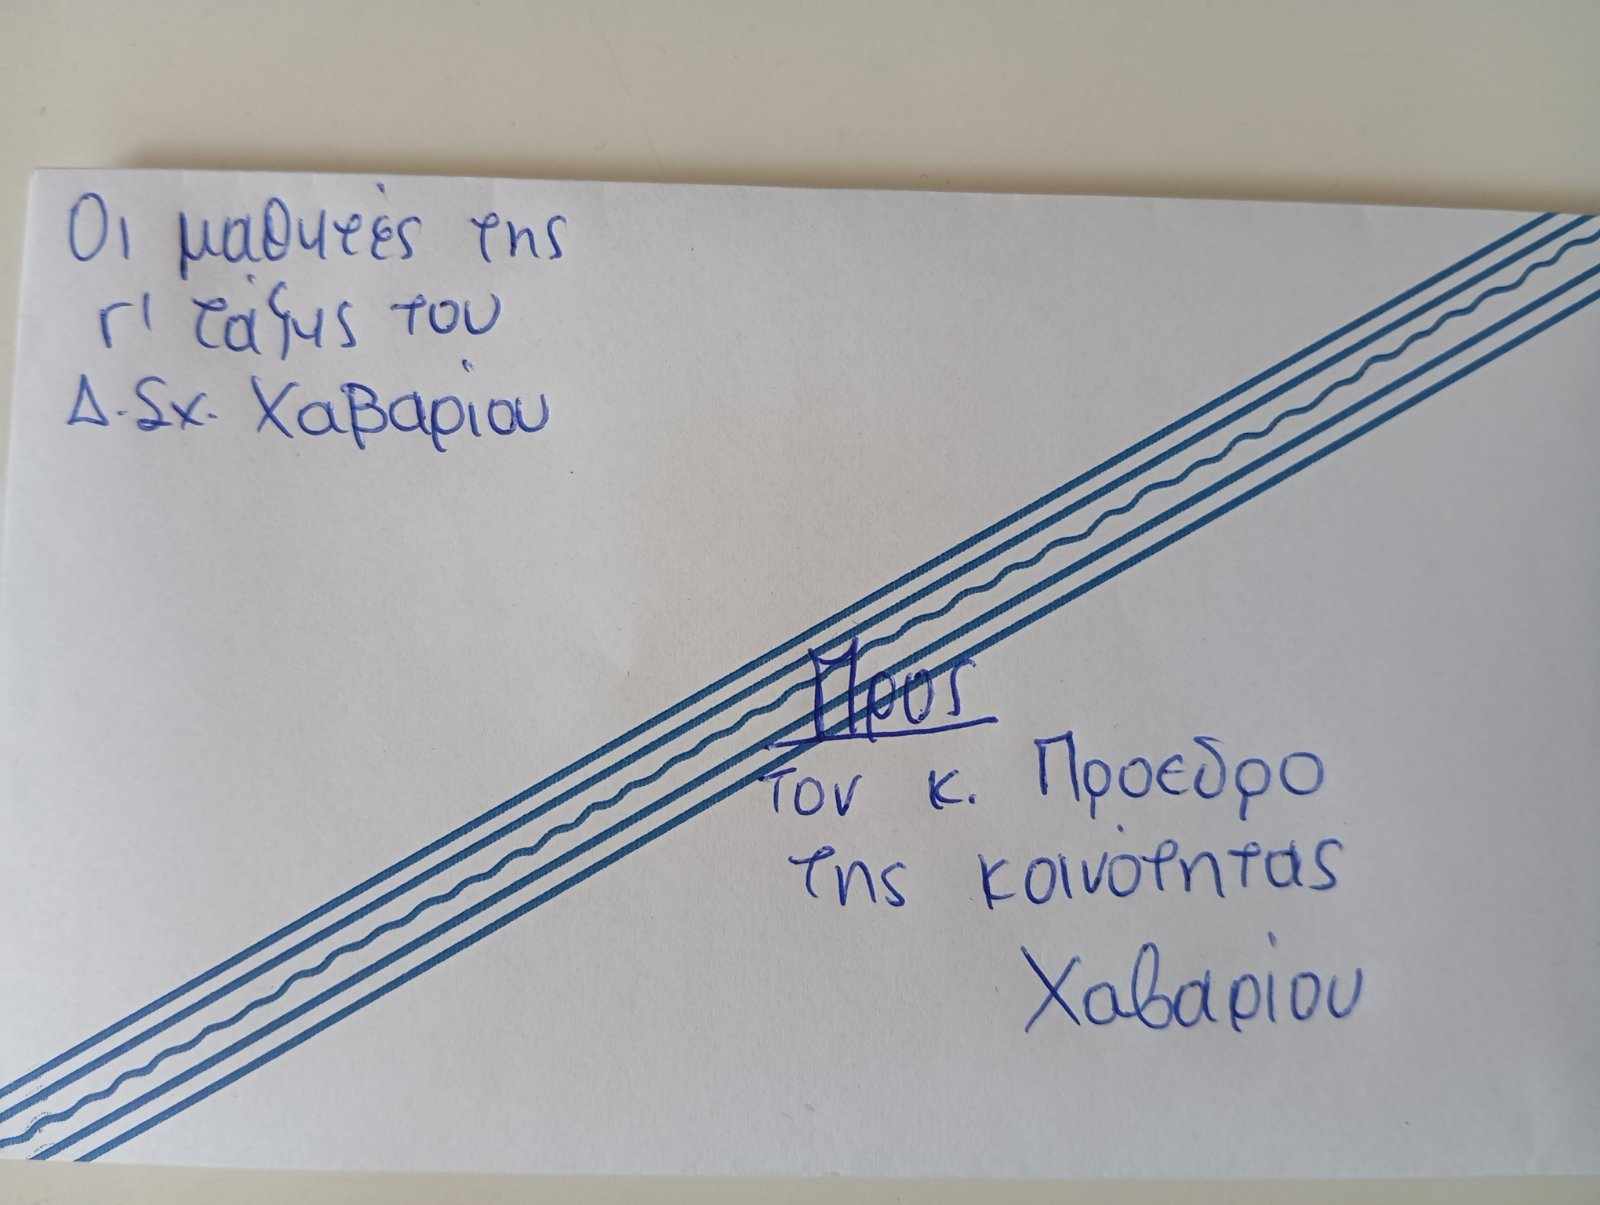 Οι μαθητές της
Γ' τάξης του
Δ. Σχ. Χαβαρίου
Προς
τον κ. Προεδρο
της κοινότητας
Χαβαρίου